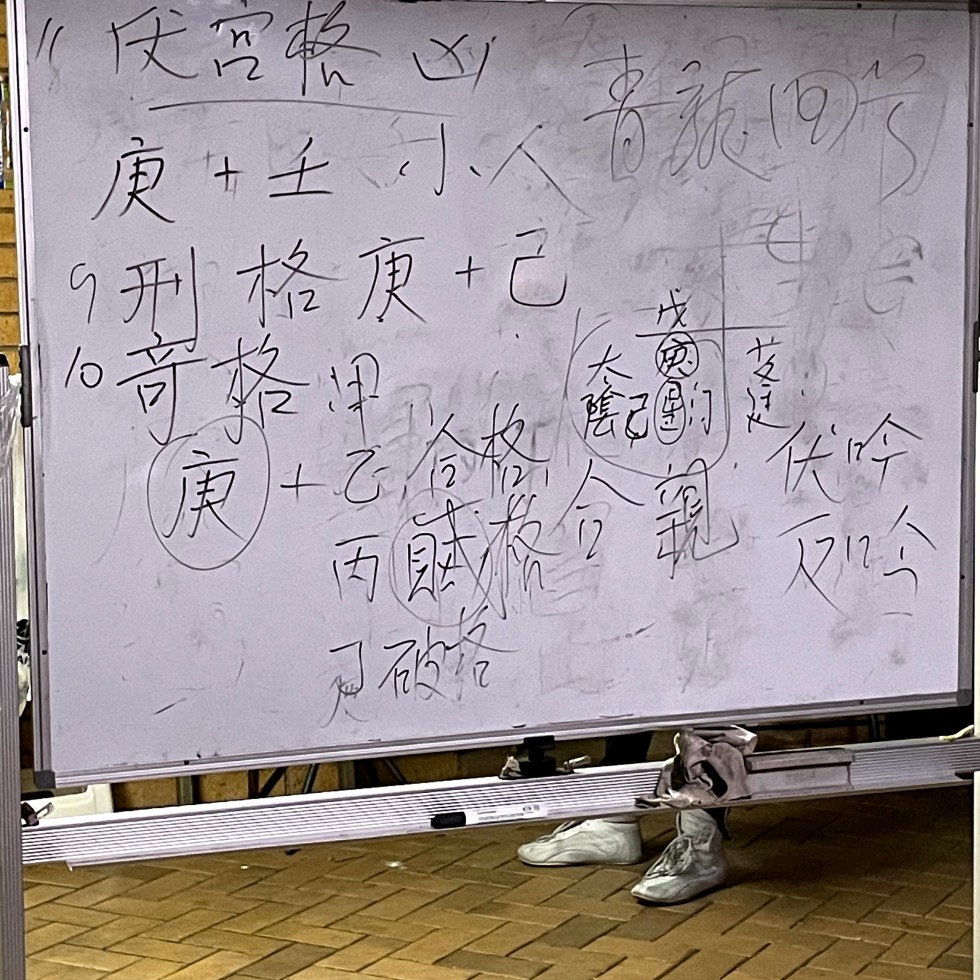 11 伏宮格 凶
庚 + 壬 小人
青龍回
9 刑格 庚 + 己
10 奇格
戊
庚
太陰 己 星 门
庚 + 乙 合格
合親
伏吟
丙 賊格
反吟
丁 破格